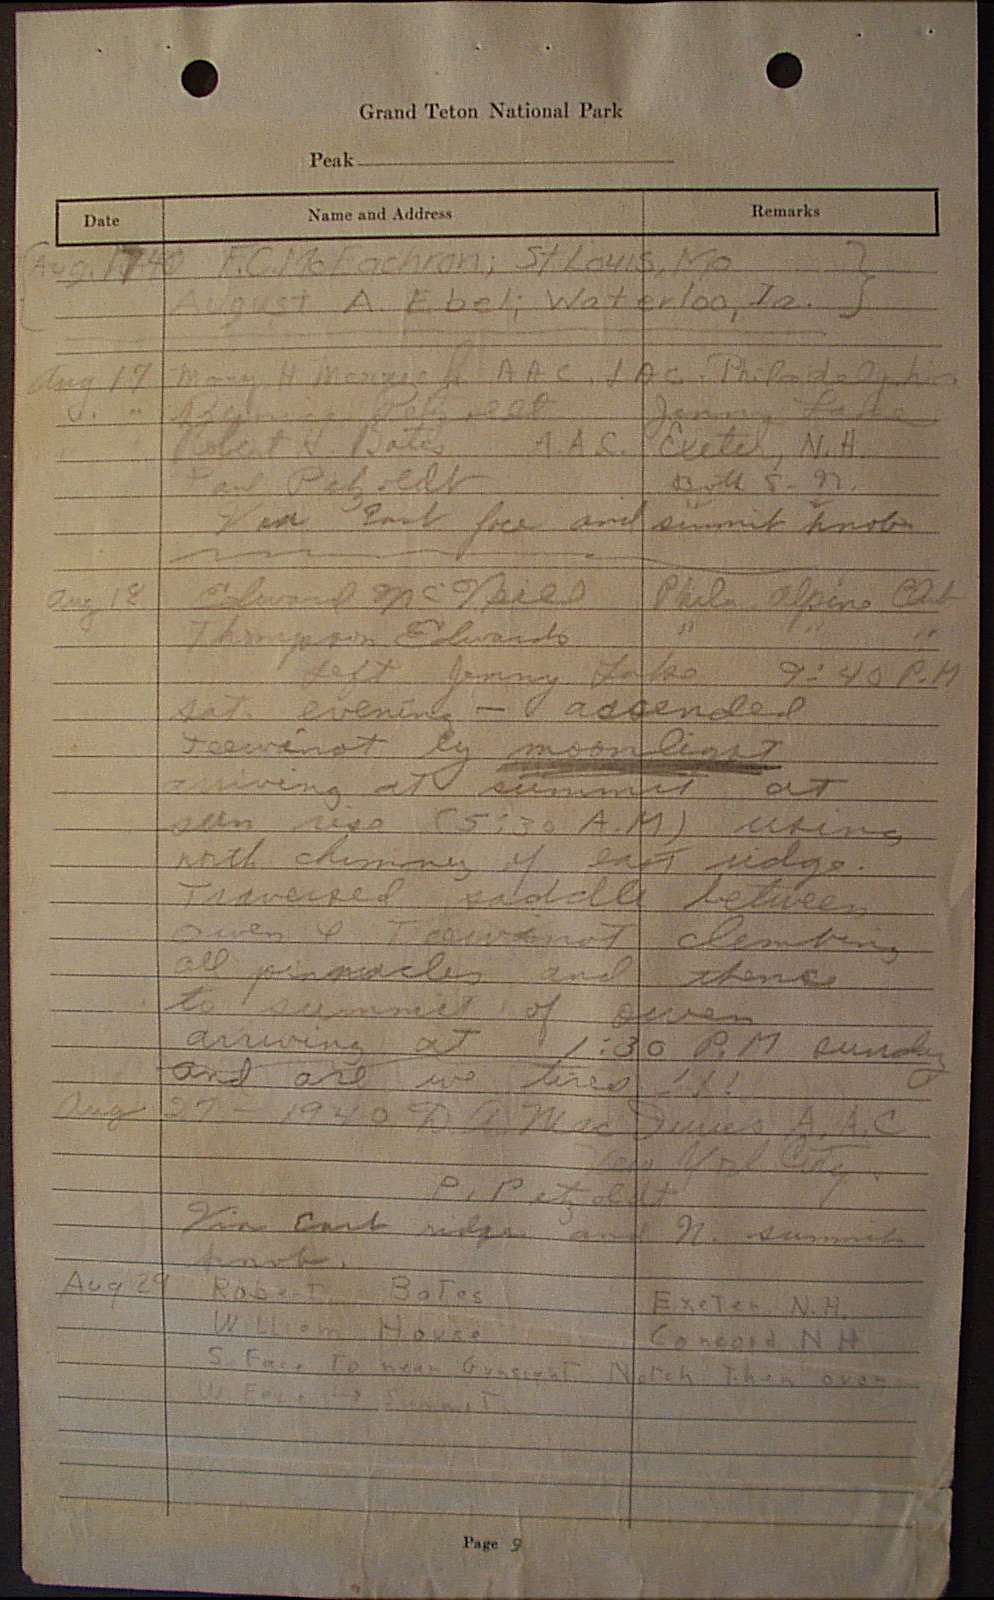 Grand Teton National Park
Peak
Date Name and Address Remarks
Aug. 17 40 F.C. McEachron; St Louis, Mo
August A. Ebel; Waterloo, Ia.
Aug 17 Mary H A A C. Philadelphia
" " Petzoldt Jenny Lake
Robert H. Bates A.A.C. Exeter, N.H.
Paul Petzoldt
Via East face and summit knob
Aug 18 Edward McNeill Phila Alpine Club
Thompson Edwards " " "
Left Jenny Lake 9:40 P.M
sat. evening — ascended
Teewinot by moonlight
arriving at summit at
sun rise (5:30 A.M) using
north chimney of east ridge.
Traversed saddle between
Owen & Teewinot climbing
all pinnacles and thence
to summit of Owen
arriving at 1:30 P.M sunday
and are we tired !!!
Aug 27 - 1940 A. A. C
New York City.
P. Petzoldt
Via East ridge and N. summit
knob.
Aug 29 Robert Bates Exeter, N.H.
William House Concord N H
S. Face to near Gunsight Notch then over
W Face → Summit.
Page 9